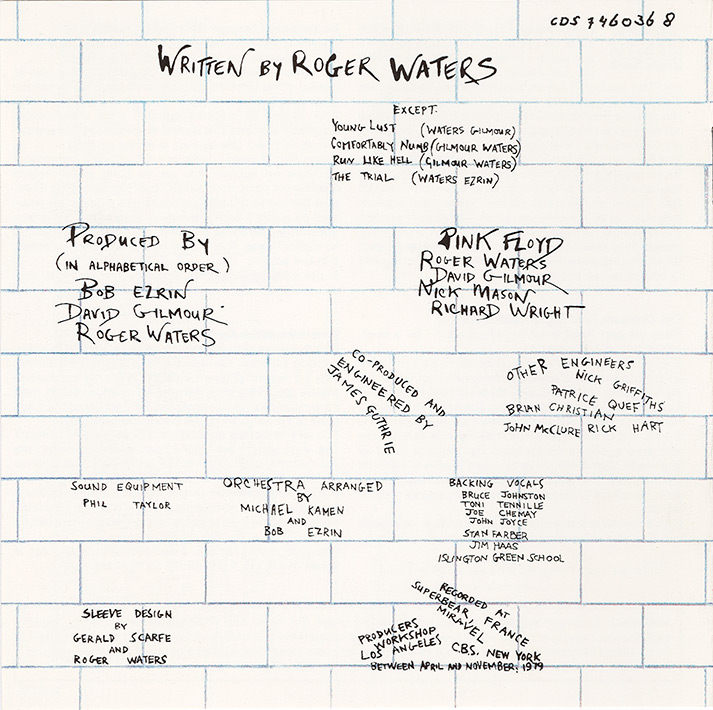 CDS 7 46036 8
WRITTEN BY ROGER WATERS
EXCEPT:
YOUNG LUST (WATERS GILMOUR)
COMFORTABLY NUMB (GILMOUR WATERS)
RUN LIKE HELL (GILMOUR WATERS)
THE TRIAL (WATERS EZRIN)
PRODUCED BY
(IN ALPHABETICAL ORDER)
BOB EZRIN
DAVID GILMOUR
ROGER WATERS
PINK FLOYD
ROGER WATERS
DAVID GILMOUR
NICK MASON
RICHARD WRIGHT
CO-PRODUCED AND
ENGINEERED BY
JAMES GUTHRIE
OTHER ENGINEERS
NICK GRIFFITHS
PATRICE QUEF
BRIAN CHRISTIAN
JOHN McCLURE RICK HART
SOUND EQUIPMENT
PHIL TAYLOR
ORCHESTRA ARRANGED
BY
MICHAEL KAMEN
AND
BOB EZRIN
BACKING VOCALS
BRUCE JOHNSTON
TONI TENNILLE
JOE CHEMAY
JOHN JOYCE
STAN FARBER
JIM HAAS
ISLINGTON GREEN SCHOOL
SLEEVE DESIGN
BY
GERALD SCARFE
AND
ROGER WATERS
RECORDED AT
SUPERBEAR, FRANCE
MIRAVEL
PRODUCERS
WORKSHOP
LOS ANGELES
CBS. NEW YORK
BETWEEN APRIL AND NOVEMBER, 1979